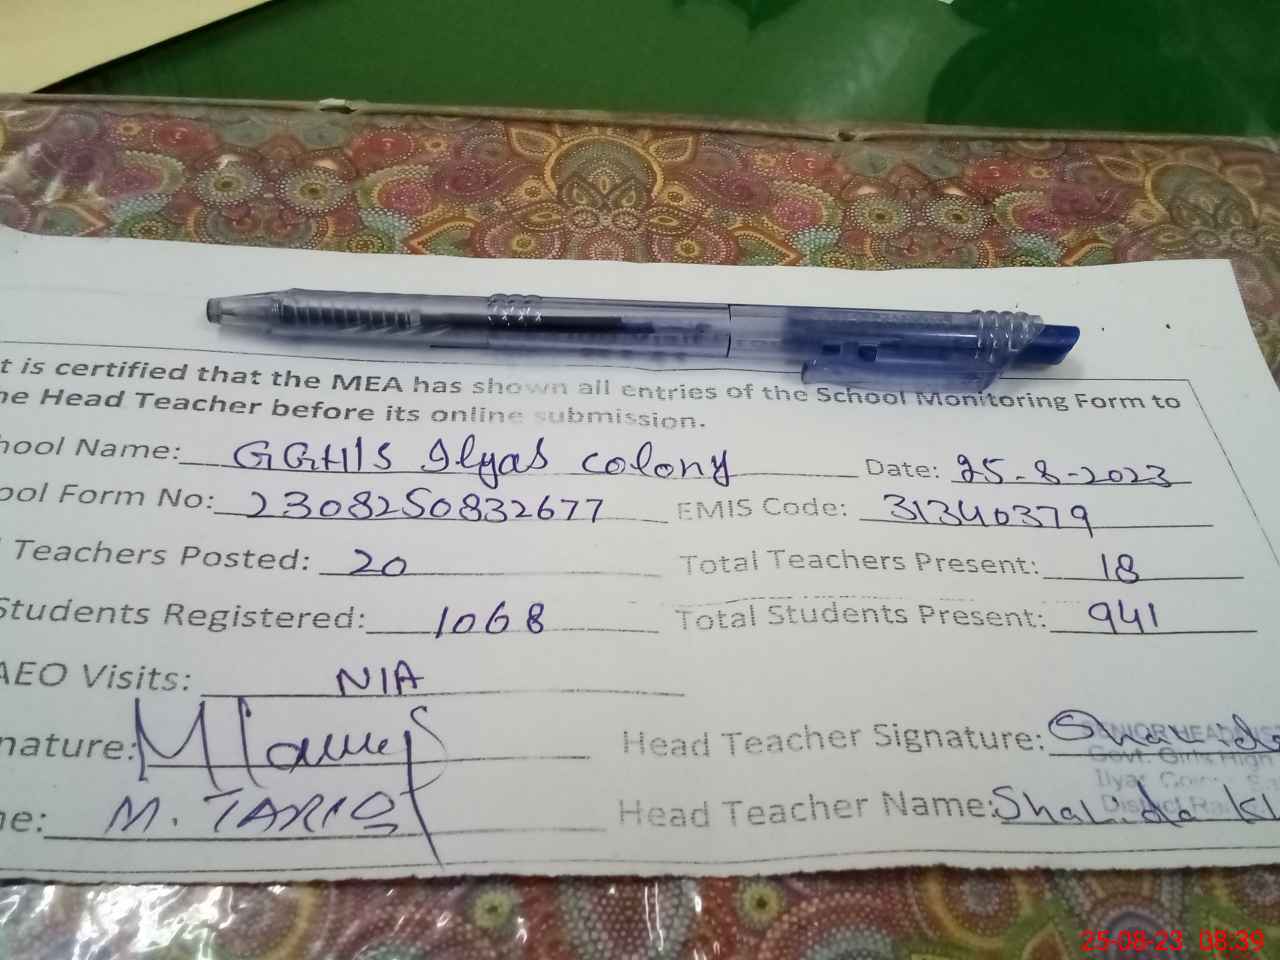 t is certified that the MEA has shown all entries of the School Monitoring Form to
he Head Teacher before its online submission.
hool Name: GGHS Ilyas colony Date: 25-8-2023
ool Form No: 2308250832677 EMIS Code: 31340379
Teachers Posted: 20 Total Teachers Present: 18
Students Registered: 1068 Total Students Present: 941
AEO Visits: N/A
nature: Head Teacher Signature:
ne: M. TARIQ Head Teacher Name:
SENIOR HEAD
Govt. Girls High
25-08-23 08:39